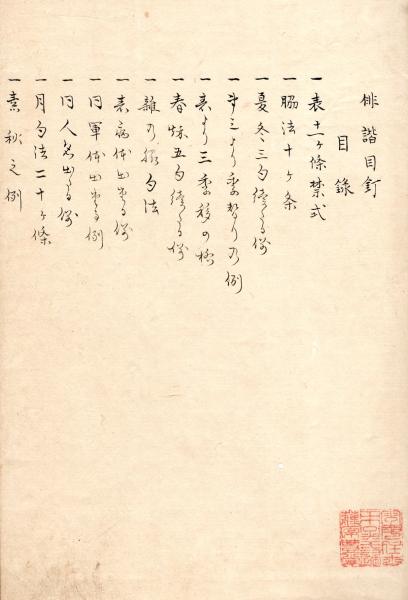 俳諧目釘
目録
一表十一ヶ條禁式
一脇法十ヶ条
一夏冬三句續くる例
一より季移りの例
一表より三季移の格
一春秋五句續くる例
一雑の揚句法
一表病体出る例
一同軍体出る例
一同人名出る例
一月句法二十ヶ條
一素秋之例